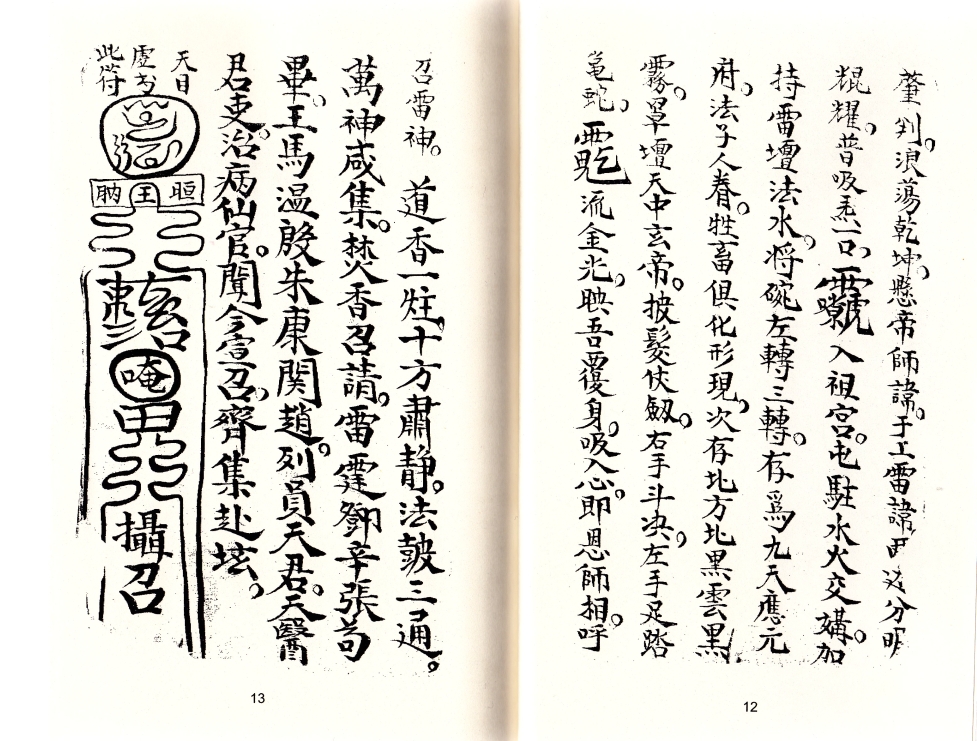 判。浪蕩乾坤。懸帝師諱。于工雷諱 分明
焜耀。普吸炁一口。 入祖宮。屯駐水火交媾。加
持雷壇法水。將碗左轉三轉。存為九天應元
府。法子人眷。牲畜俱化形現。次存北方北黑雲黑
霧。罩壇天中玄帝。披髮仗劍。右手斗決。左手足踏
龜蛇。 流金光。映吾覆身。吸入心。即恩師相呼
12
召雷神。 道香一炷。十方肅静。法皷三通。
萬神咸集。焚香召請。雷霆鄧辛張苟
畢。王馬温殷朱康関趙。列員天君。天醫
君吏。治病仙官。聞今宣召。齊集赴坛。
天目
虛書
此符
唵
攝召
13